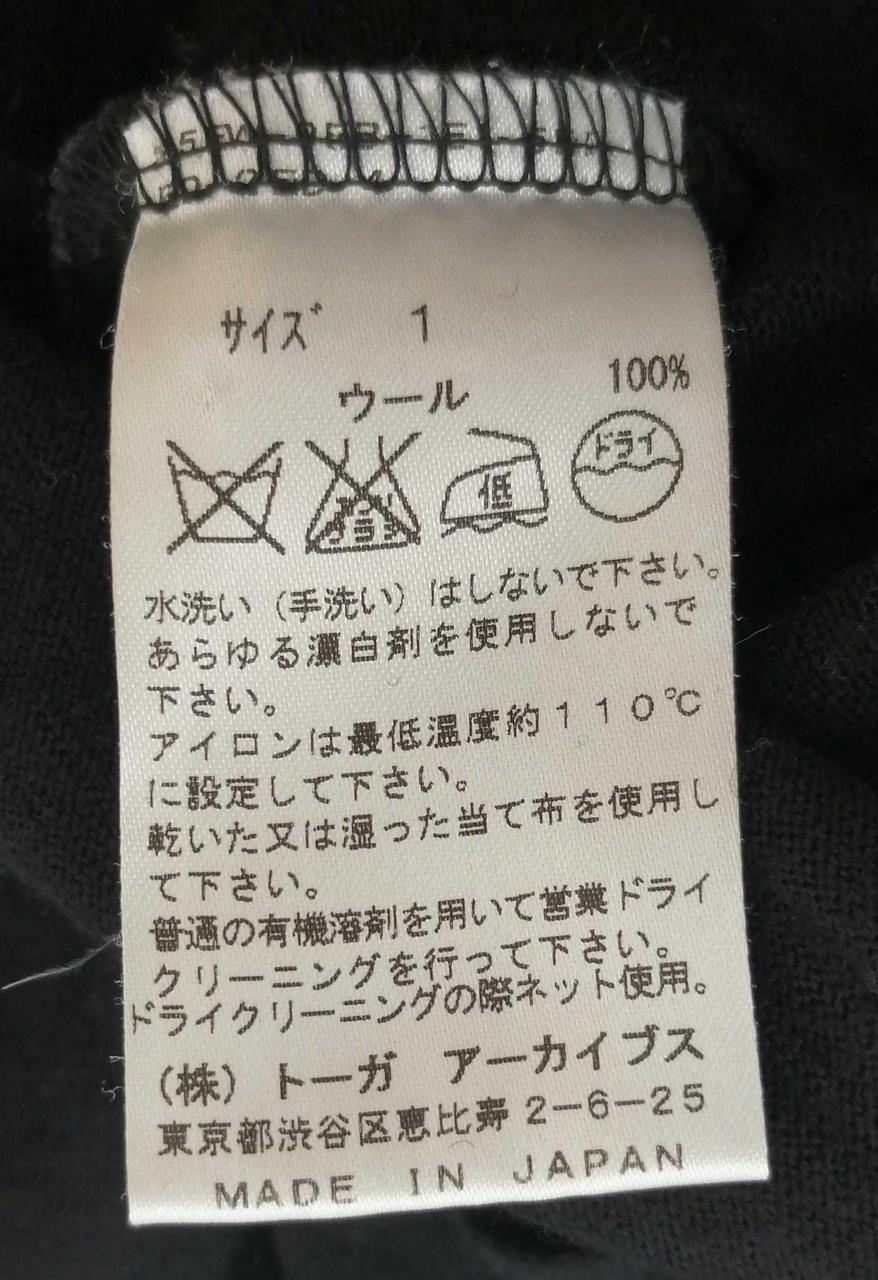 サイズ 1
100%
ウール
ドライ
低
水洗い（手洗い）はしないで下さい。
あらゆる漂白剤を使用しないで
下さい。
アイロンは最低温度約１１０℃
に設定して下さい。
乾いた又は湿った当て布を使用し
て下さい。
普通の有機溶剤を用いて営業ドライ
クリーニングを行って下さい。
ドライクリーニングの際ネット使用。
（株）トーガ アーカイブス
東京都渋谷区恵比寿2-6-25
MADE IN JAPAN